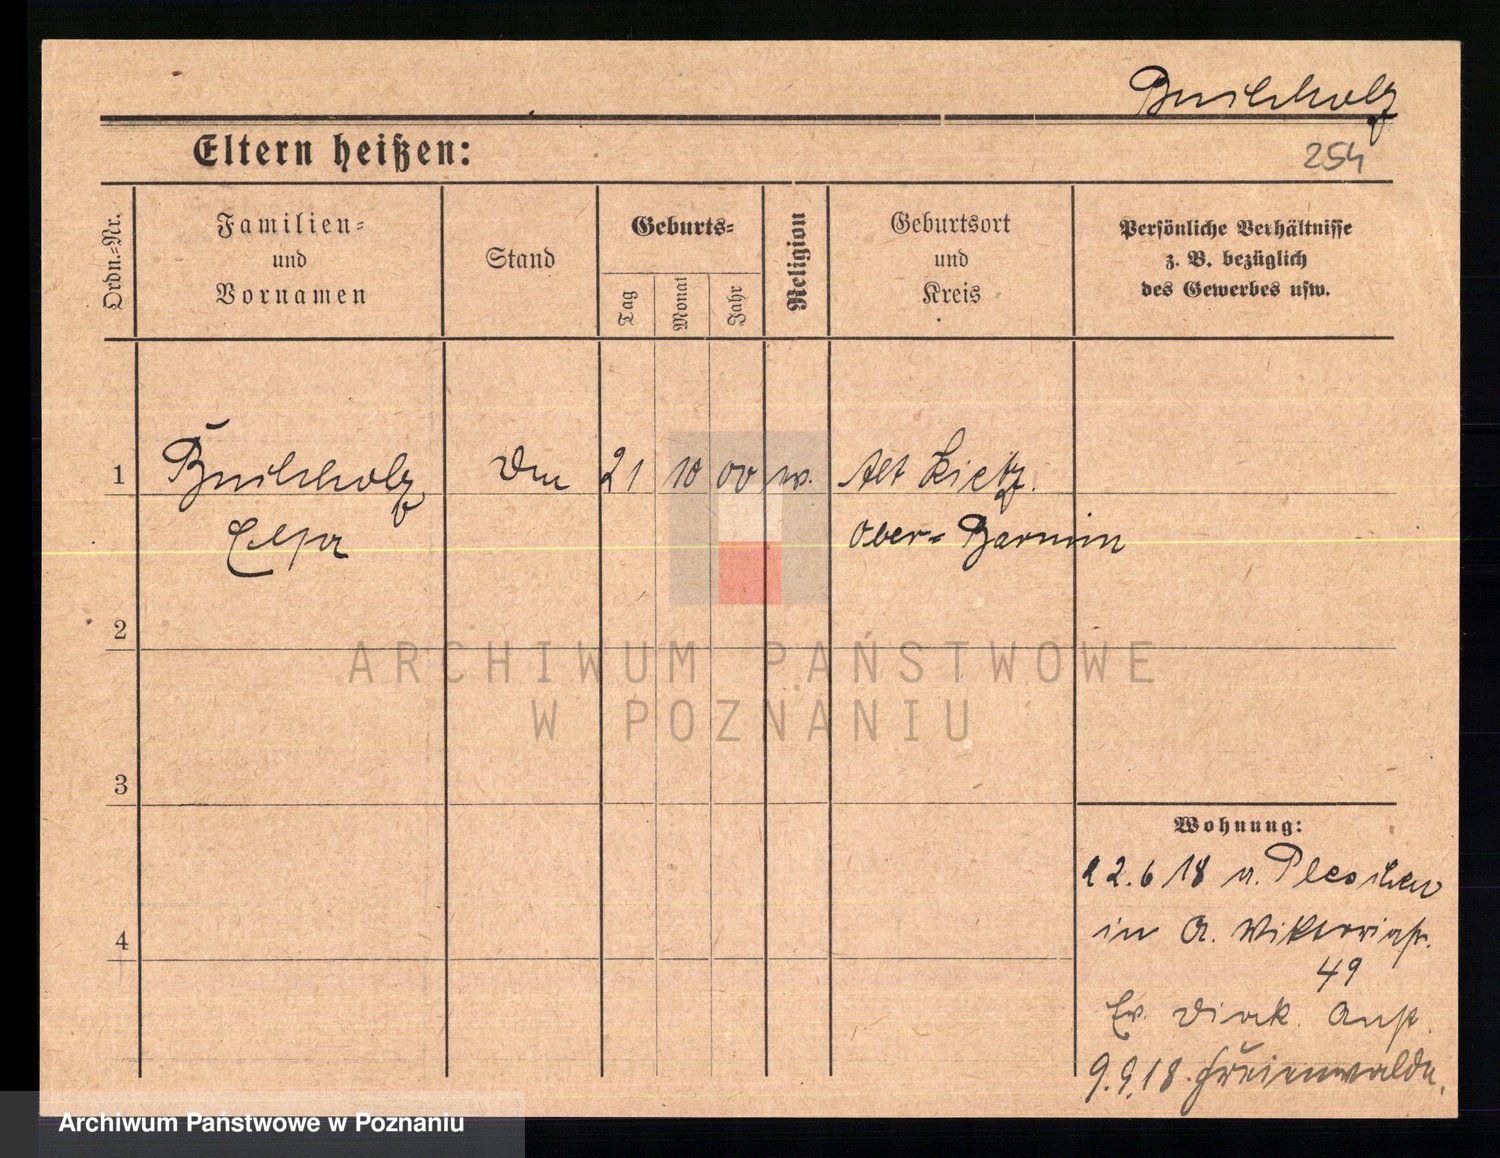 Buchholz
254
Eltern heißen:
Ordn.-Nr.
Familien-
und
Vornamen
Stand
Geburts-
Tag
Monat
Jahr
Religion
Geburtsort
und
Kreis
Persönliche Verhältnisse
z. B. bezüglich
des Gewerbes usw.
1
Buchholz
21 10 00
Alt Lietz.
Elsa
Ober-Barnim
2
ARCHIWUM PAŃSTWOWE
W POZNANIU
3
Wohnung:
22.6 18 a. Pleschen
4
in O. Viktoriastr.
49
Ev. Diak. Anst.
9.9.18. Freienwalde.
Archiwum Państwowe w Poznaniu